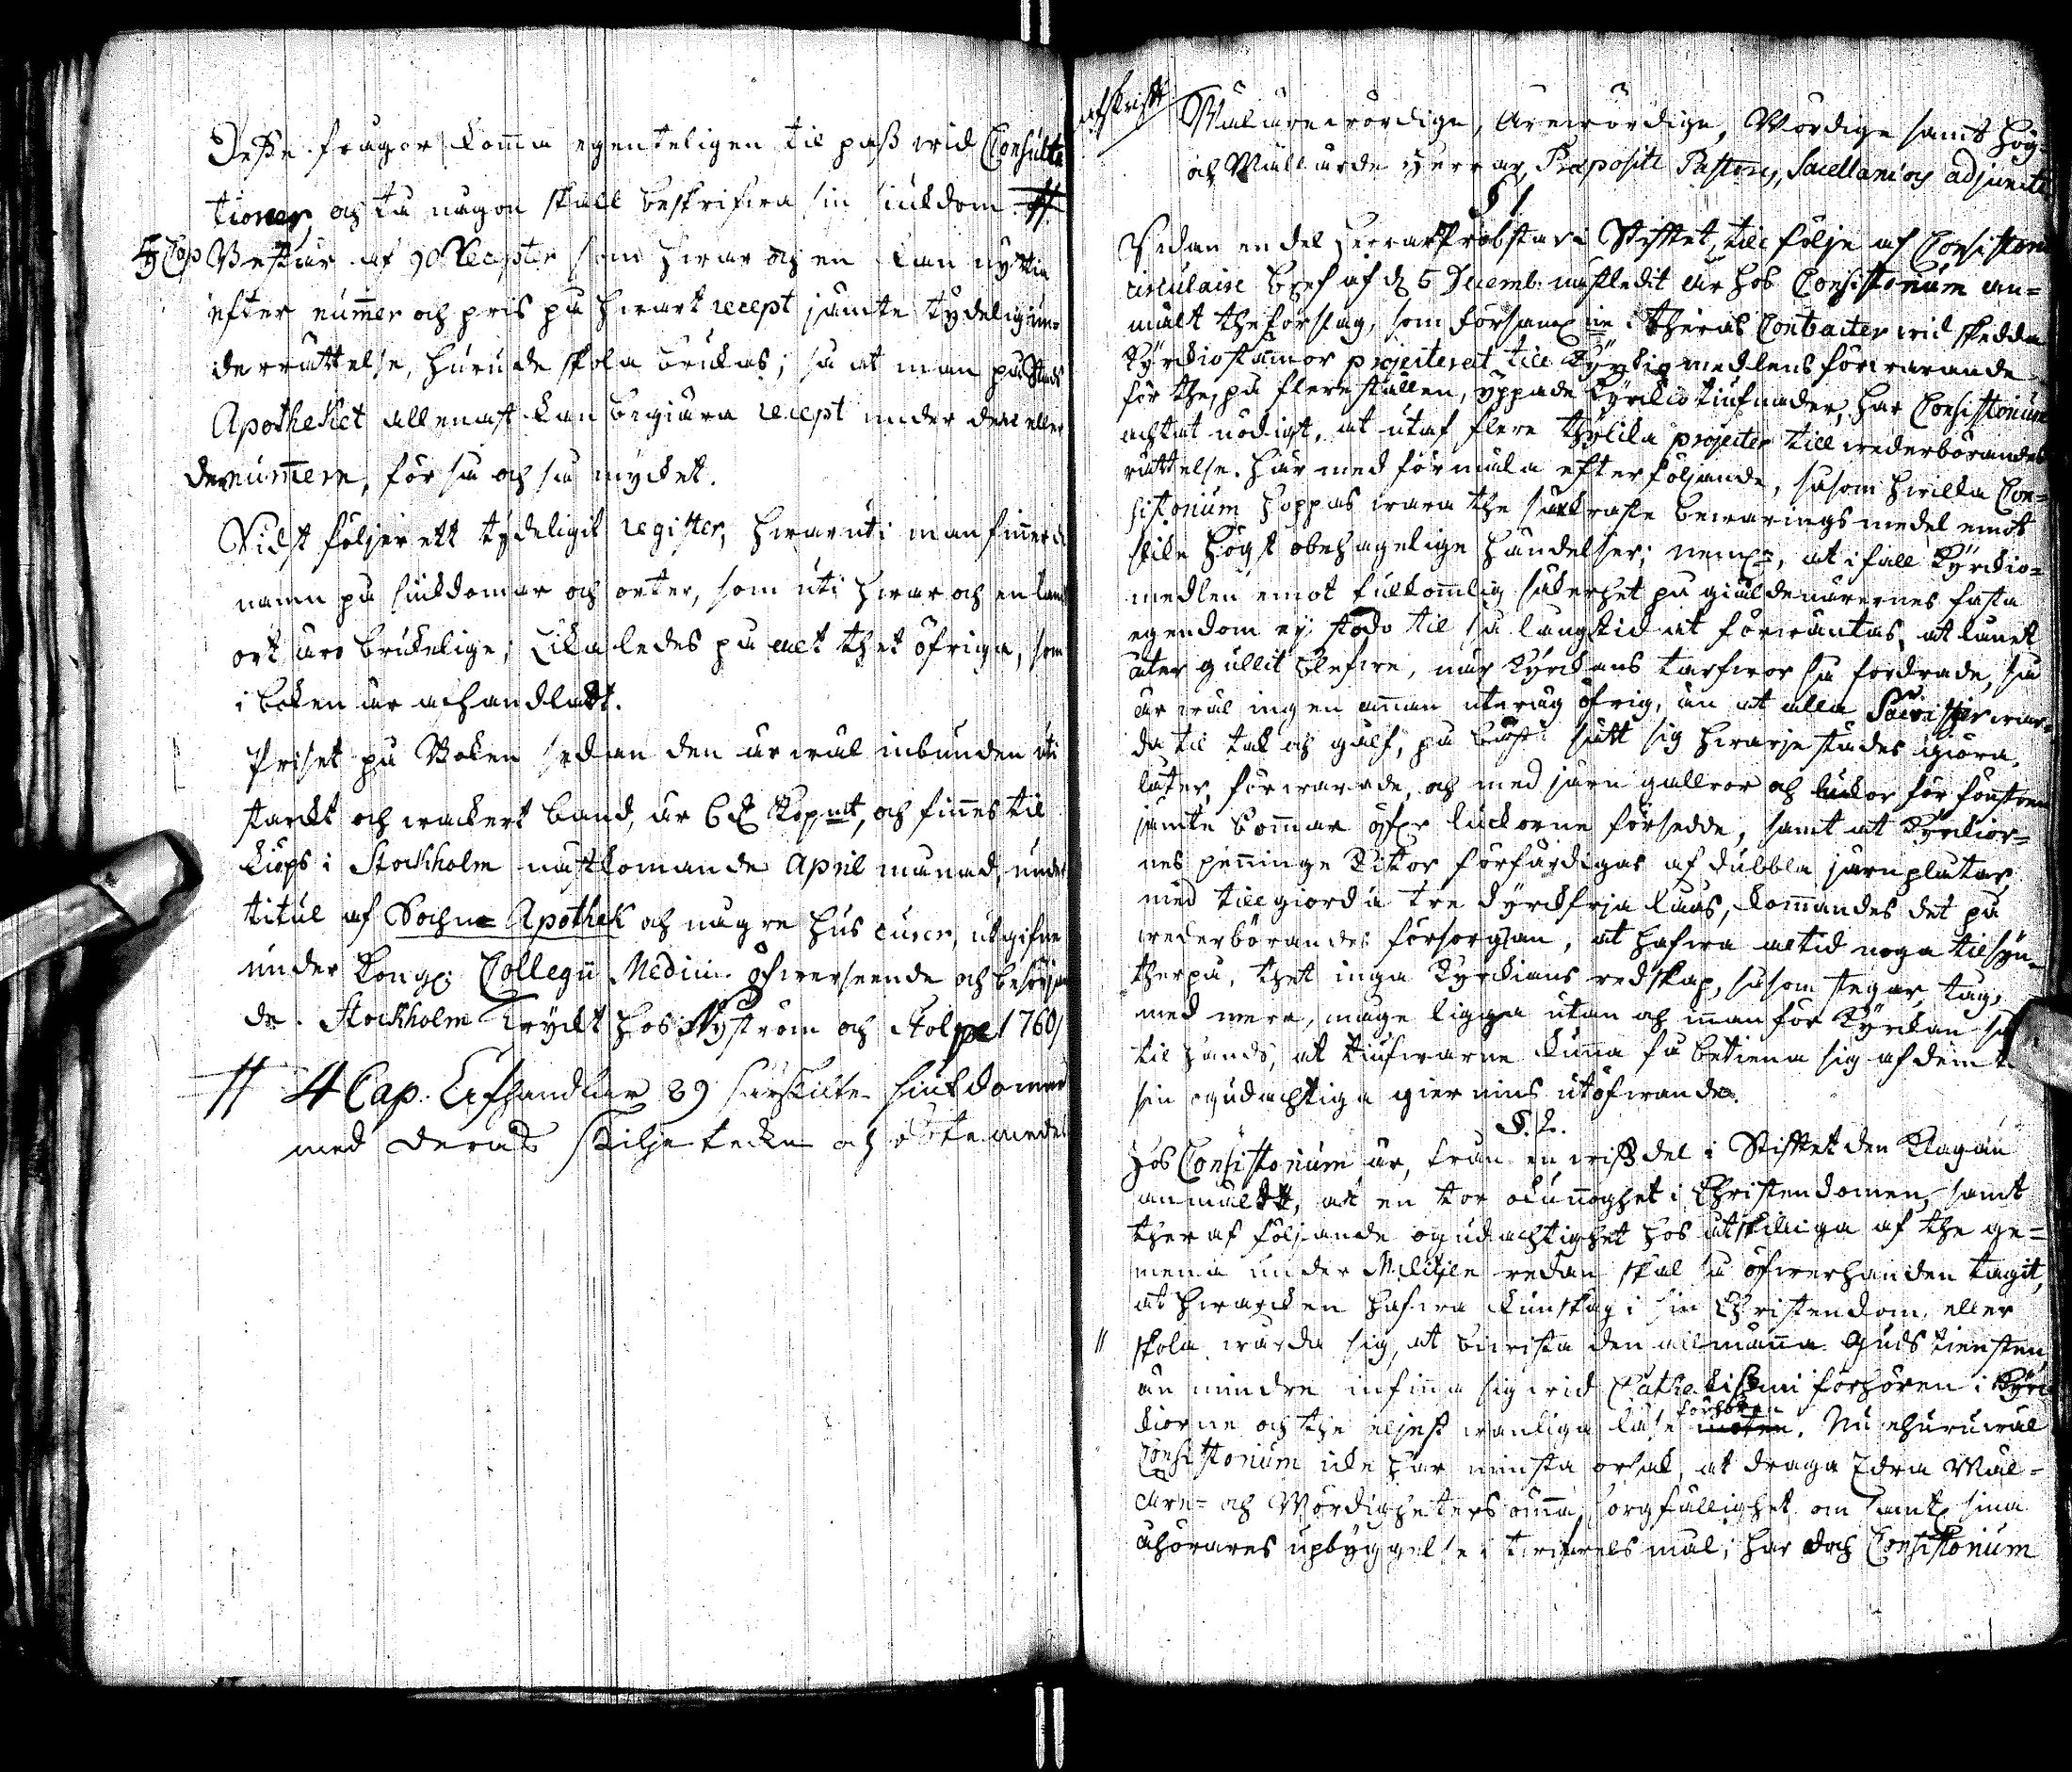 Desse frågor komma egenteligen til pass wid Consulta
tioner, och då någon skall beskrifwa sin siukdom #
5 Cap Består af 90 Recepter som hwar och en kan nyttia
efter nummer och pris på hwart recept jämte tydelig un-
derrättelse, huru de skola brukas; så at man på Stads
Apotheket allenast kan begiära recept under den eller
den numern, för så och så mycket.
Sidst följer ett tydeligit register, hwaruti man finner de
namn på siukdomar och örter, som uti hwar och en lands
ort äro brukelige; Likaledes på alt thet öfriga, som
i boken är afhandladt.
Priset på Boken sedan den är wäl inbunden uti
starckt och wackert band, är 6 D Kopmt, och finnes til
kiöps i Stockholm nästkommande April månad, under
titul af Sochne Apothek och någre hus curer, utgifne
under Kongl. Collegii Medici öfwerseende och besörjan
de. Stockholm tryckt hos Nyström och Stolpe 1760/
# 4 Cap. Afhandlar 29 särskilte siukdomar
med deras skilje teckn och botemedel
afskrift
Wälärewördige, Ärewördige, Wördige samt Hög-
och Wällärde Herrar, Præpositi Pastores, Sacellani och adjuncti
§ 1
Sedan en del Herrar Probstar i Stifftet, till följe af Consistorii
circulaire bref af d. 5 Decemb. nästledit år hos Consistorium an-
mält the förslag, som församl.ne i theras Contracter wid skedda
Kyrckiostämmor projecterat till Kyrckiomedlens förwarande
för the, på flere ställen, yppade Kyrckio tiufnader, har Consistorium
achtat nödigt, at utaf flere thylika projecter till wederbörandes
rättelse. Här med förmäla efterföljande, såsom hwilka Con-
sistorium hoppas wara the säkraste bewaringsmedel emot
slike högst obehagelige händelser; neml., at ifall Kyrckio-
medlen emot fullkomlig säkerhet på giäldenärernes fasta
egendom ey stodo til så lång tid at förwäntas, at lånet
åter gullit blefwe, när Kyrckans tarfwor så fordrade, så
är wäl ingen annan utwäg öfrig, än at alla Sacristier war-
da til tak och gålf, på bästa sätt sig hwarje städes giöra
låter, förwarade, och med järn gallror och luckor för fönstren
jämte bommar öfwer luckorne försedde, samt at Kyrckior-
nes penninge Kistor förfärdigas af dubbla järnplåtar,
med tillgiorda tre dyrckfrja låås, kommandes det på
wederbörandes försorg an, at hafwa altid noga tilsyn
therpå, thet inga Kyrckians redskap, såsom stegar, tåg,
med mera, måge ligga utan och innan för Kyrckan så
til hands, at tiufwarne kunna få betiena sig af dem t
sin ogudachtiga giernings utöfwande.
§. 2.
Hos Consistorium är, från en wiss del i Stifftet den klagan
anmäldt, at en stor okunnoghet i Christendomen, samt
ther af följande ogudachtighet hos åtskilliga af the ge-
mena under Militien redan skal så öfwerhanden tagit,
at hwarcken hafwa kunskap i sin Christendom, eller
// skola wårda sig, at biwista den allmänna Gudstiensten,
än mindre infinna sig wid Cathekismi förhören i Kyrc
kiorne och the eljest wanliga läse möten förhören. Nu ehuruwäl
Consistorium icke har minsta orsak, at draga Edra Wäl-
äre- och Wördigheters ömma sorgfällighet om samtl. sina
åhörares upbyggelse i twifwels mål; har doch Consistorium